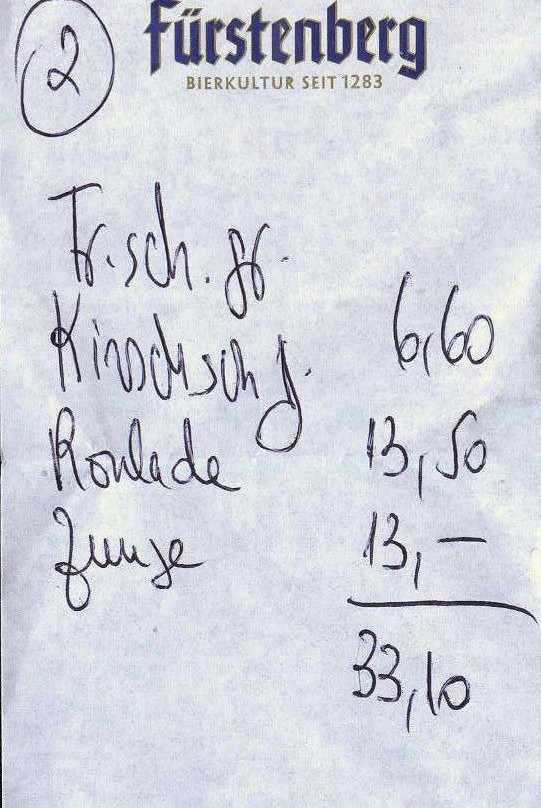 2
Fürstenberg
BIERKULTUR SEIT 1283
Tr.sch. gr.
Kirschsch g. 6,60
Roulade 13,50
Zunge 13,-
33,10